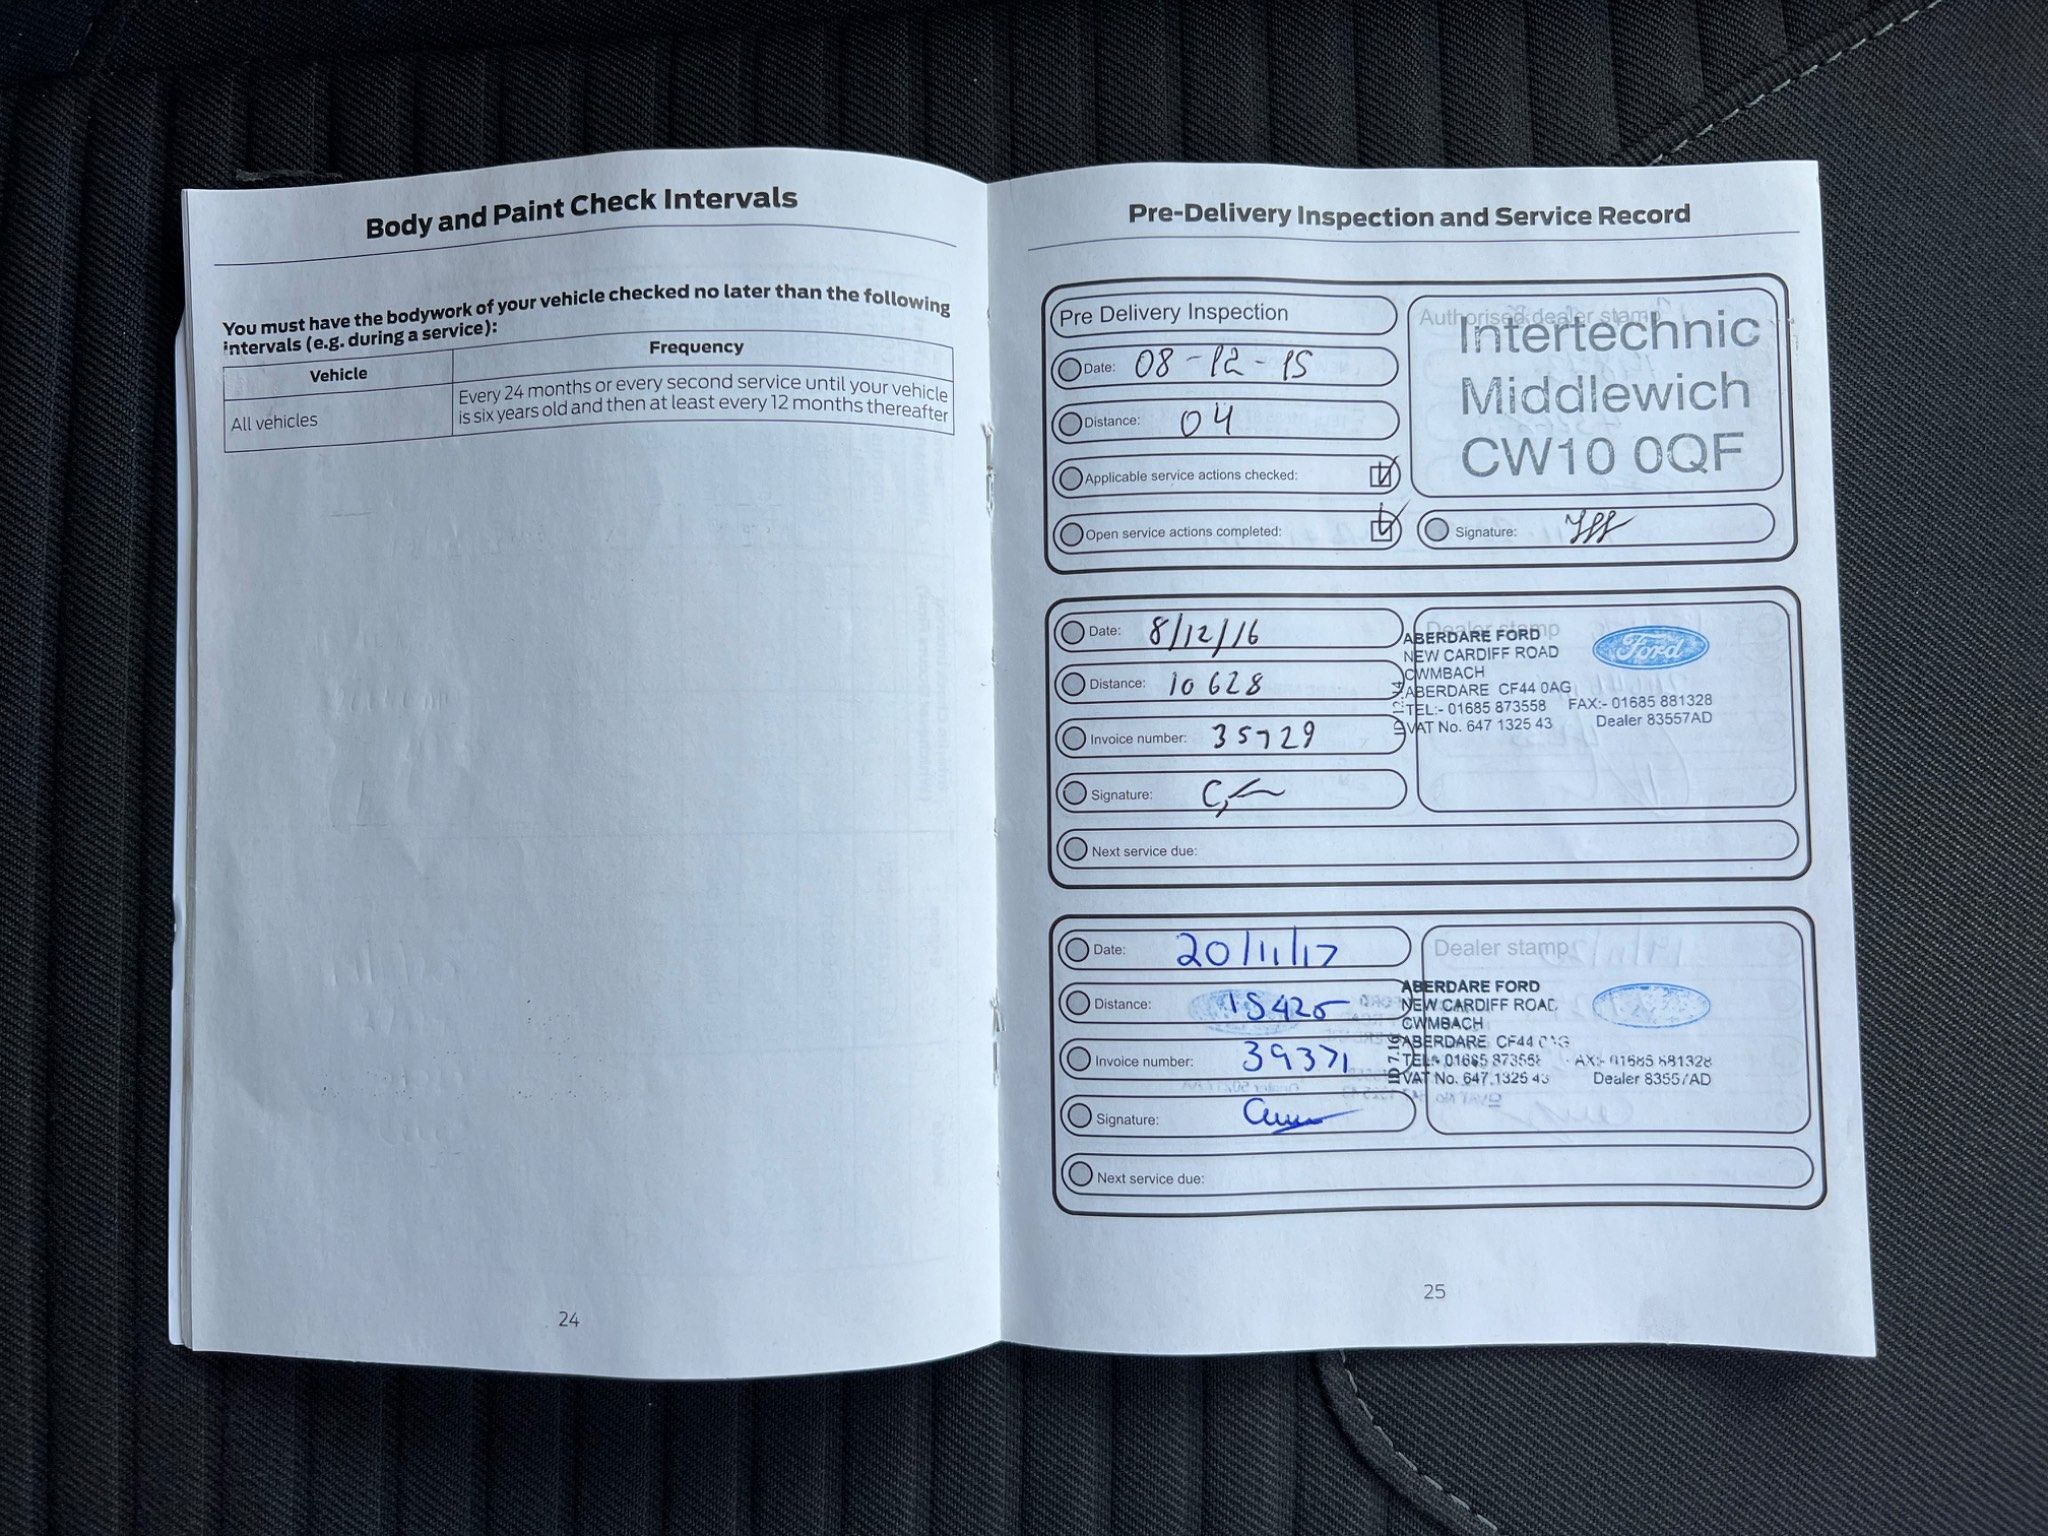 Body and Paint Check Intervals
You must have the bodywork of your vehicle checked no later than the following
intervals (e.g. during a service):
Vehicle Frequency
All vehicles Every 24 months or every second service until your vehicle
is six years old and then at least every 12 months thereafter
24
Pre-Delivery Inspection and Service Record
Pre Delivery Inspection
Date: 08-12-15
Distance: 04
Applicable service actions checked:
Open service actions completed:
Authorised dealer stamp
Intertechnic
Middlewich
CW10 0QF
Signature:
Date: 8/12/16
Distance: 10628
Invoice number: 35729
Signature:
Next service due:
Dealer stamp
ABERDARE FORD
NEW CARDIFF ROAD
CWMBACH
ABERDARE CF44 0AG
TEL:- 01685 873558 FAX:- 01685 881328
VAT No. 647 1325 43 Dealer 83557AD
Ford
Date: 20/11/17
Distance: 15425
Invoice number: 39371
Signature:
Next service due:
Dealer stamp
ABERDARE FORD
NEW CARDIFF ROAD
CWMBACH
ABERDARE CF44 0AG
TEL:- 01685 873558 FAX:- 01685 881328
VAT No. 647 1325 43 Dealer 83557AD
25